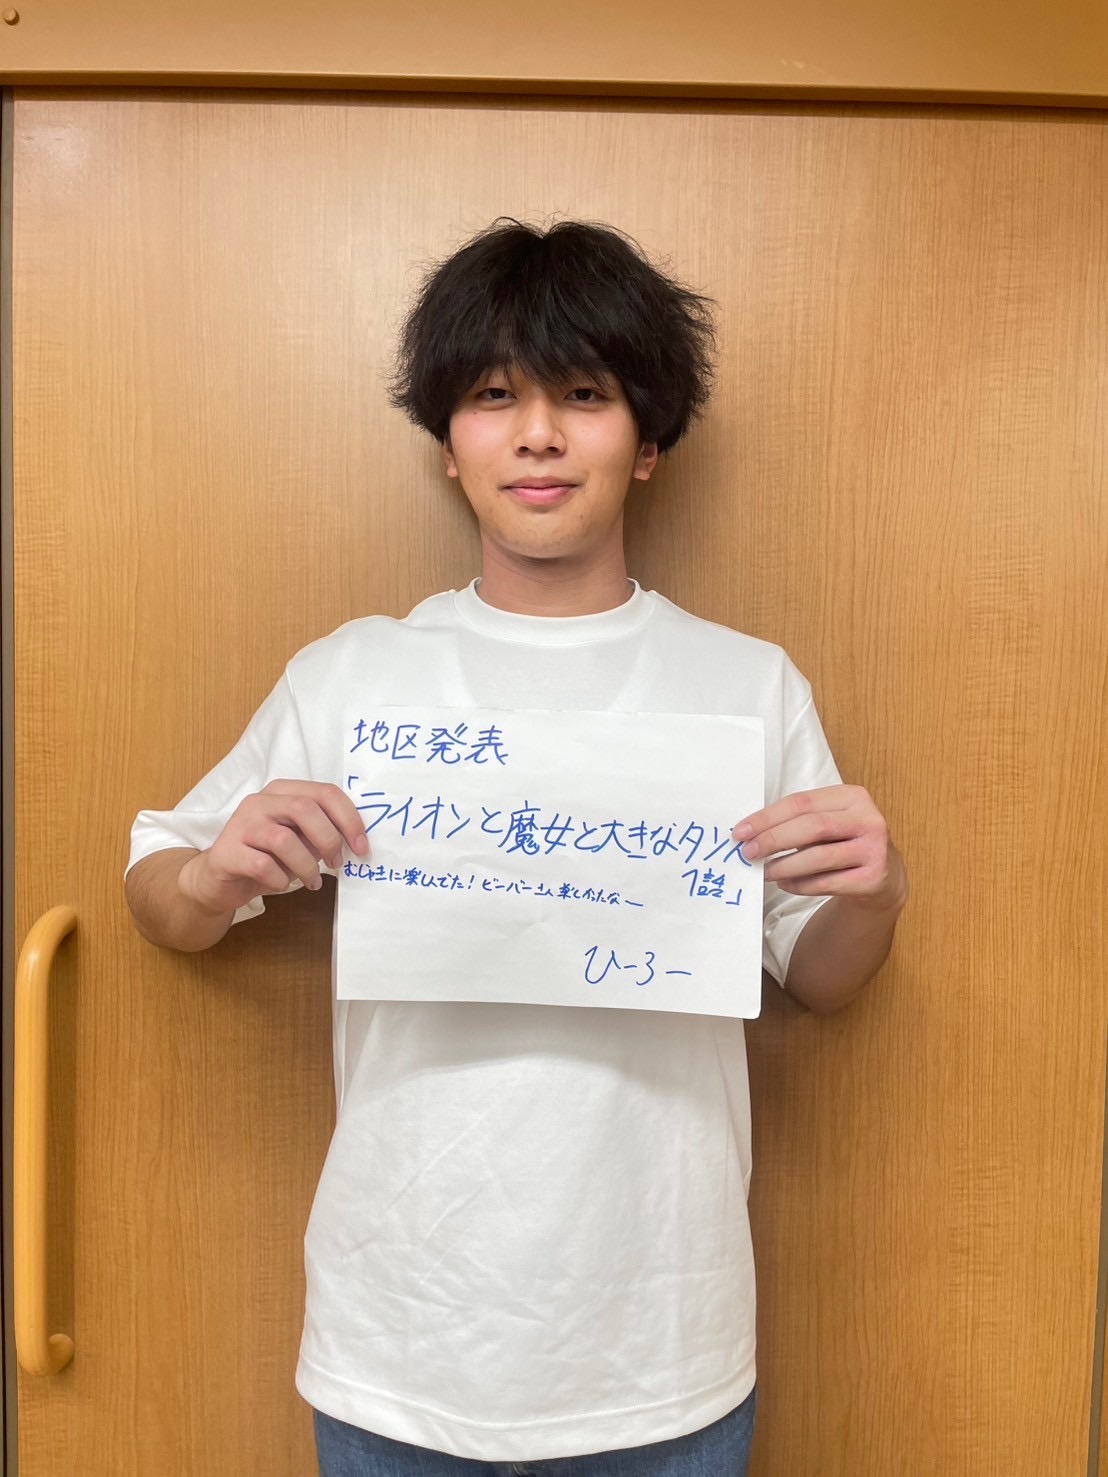 地区発表
「ライオンと魔女と大きなタンス
1話」
むじゃきに楽しんでた!ビーバーさん楽しかったなー
ひーろー